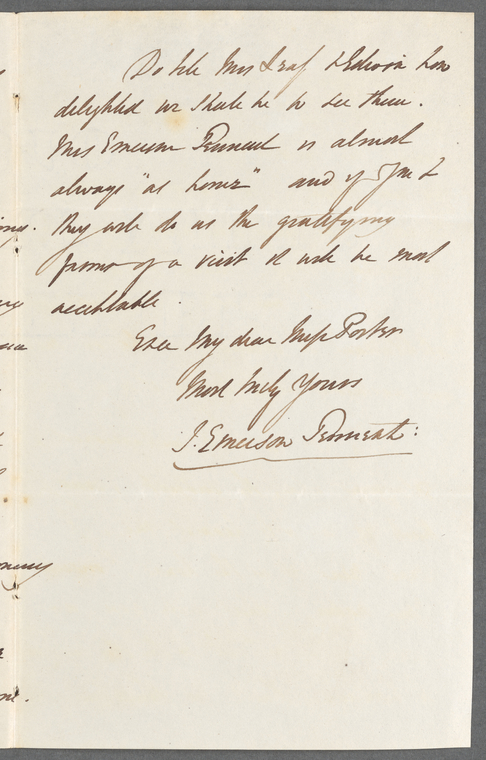 Do tell Mrs Leaf & Edwin how
delighted we shall be to see them.
Mrs Emerson Tennent is almost
always "at home" and if you &
they will do us the gratifying
favor of a visit it will be most
acceptable.
Ever My dear Miss Porter
Most truly Yours
J. Emerson Tennent: